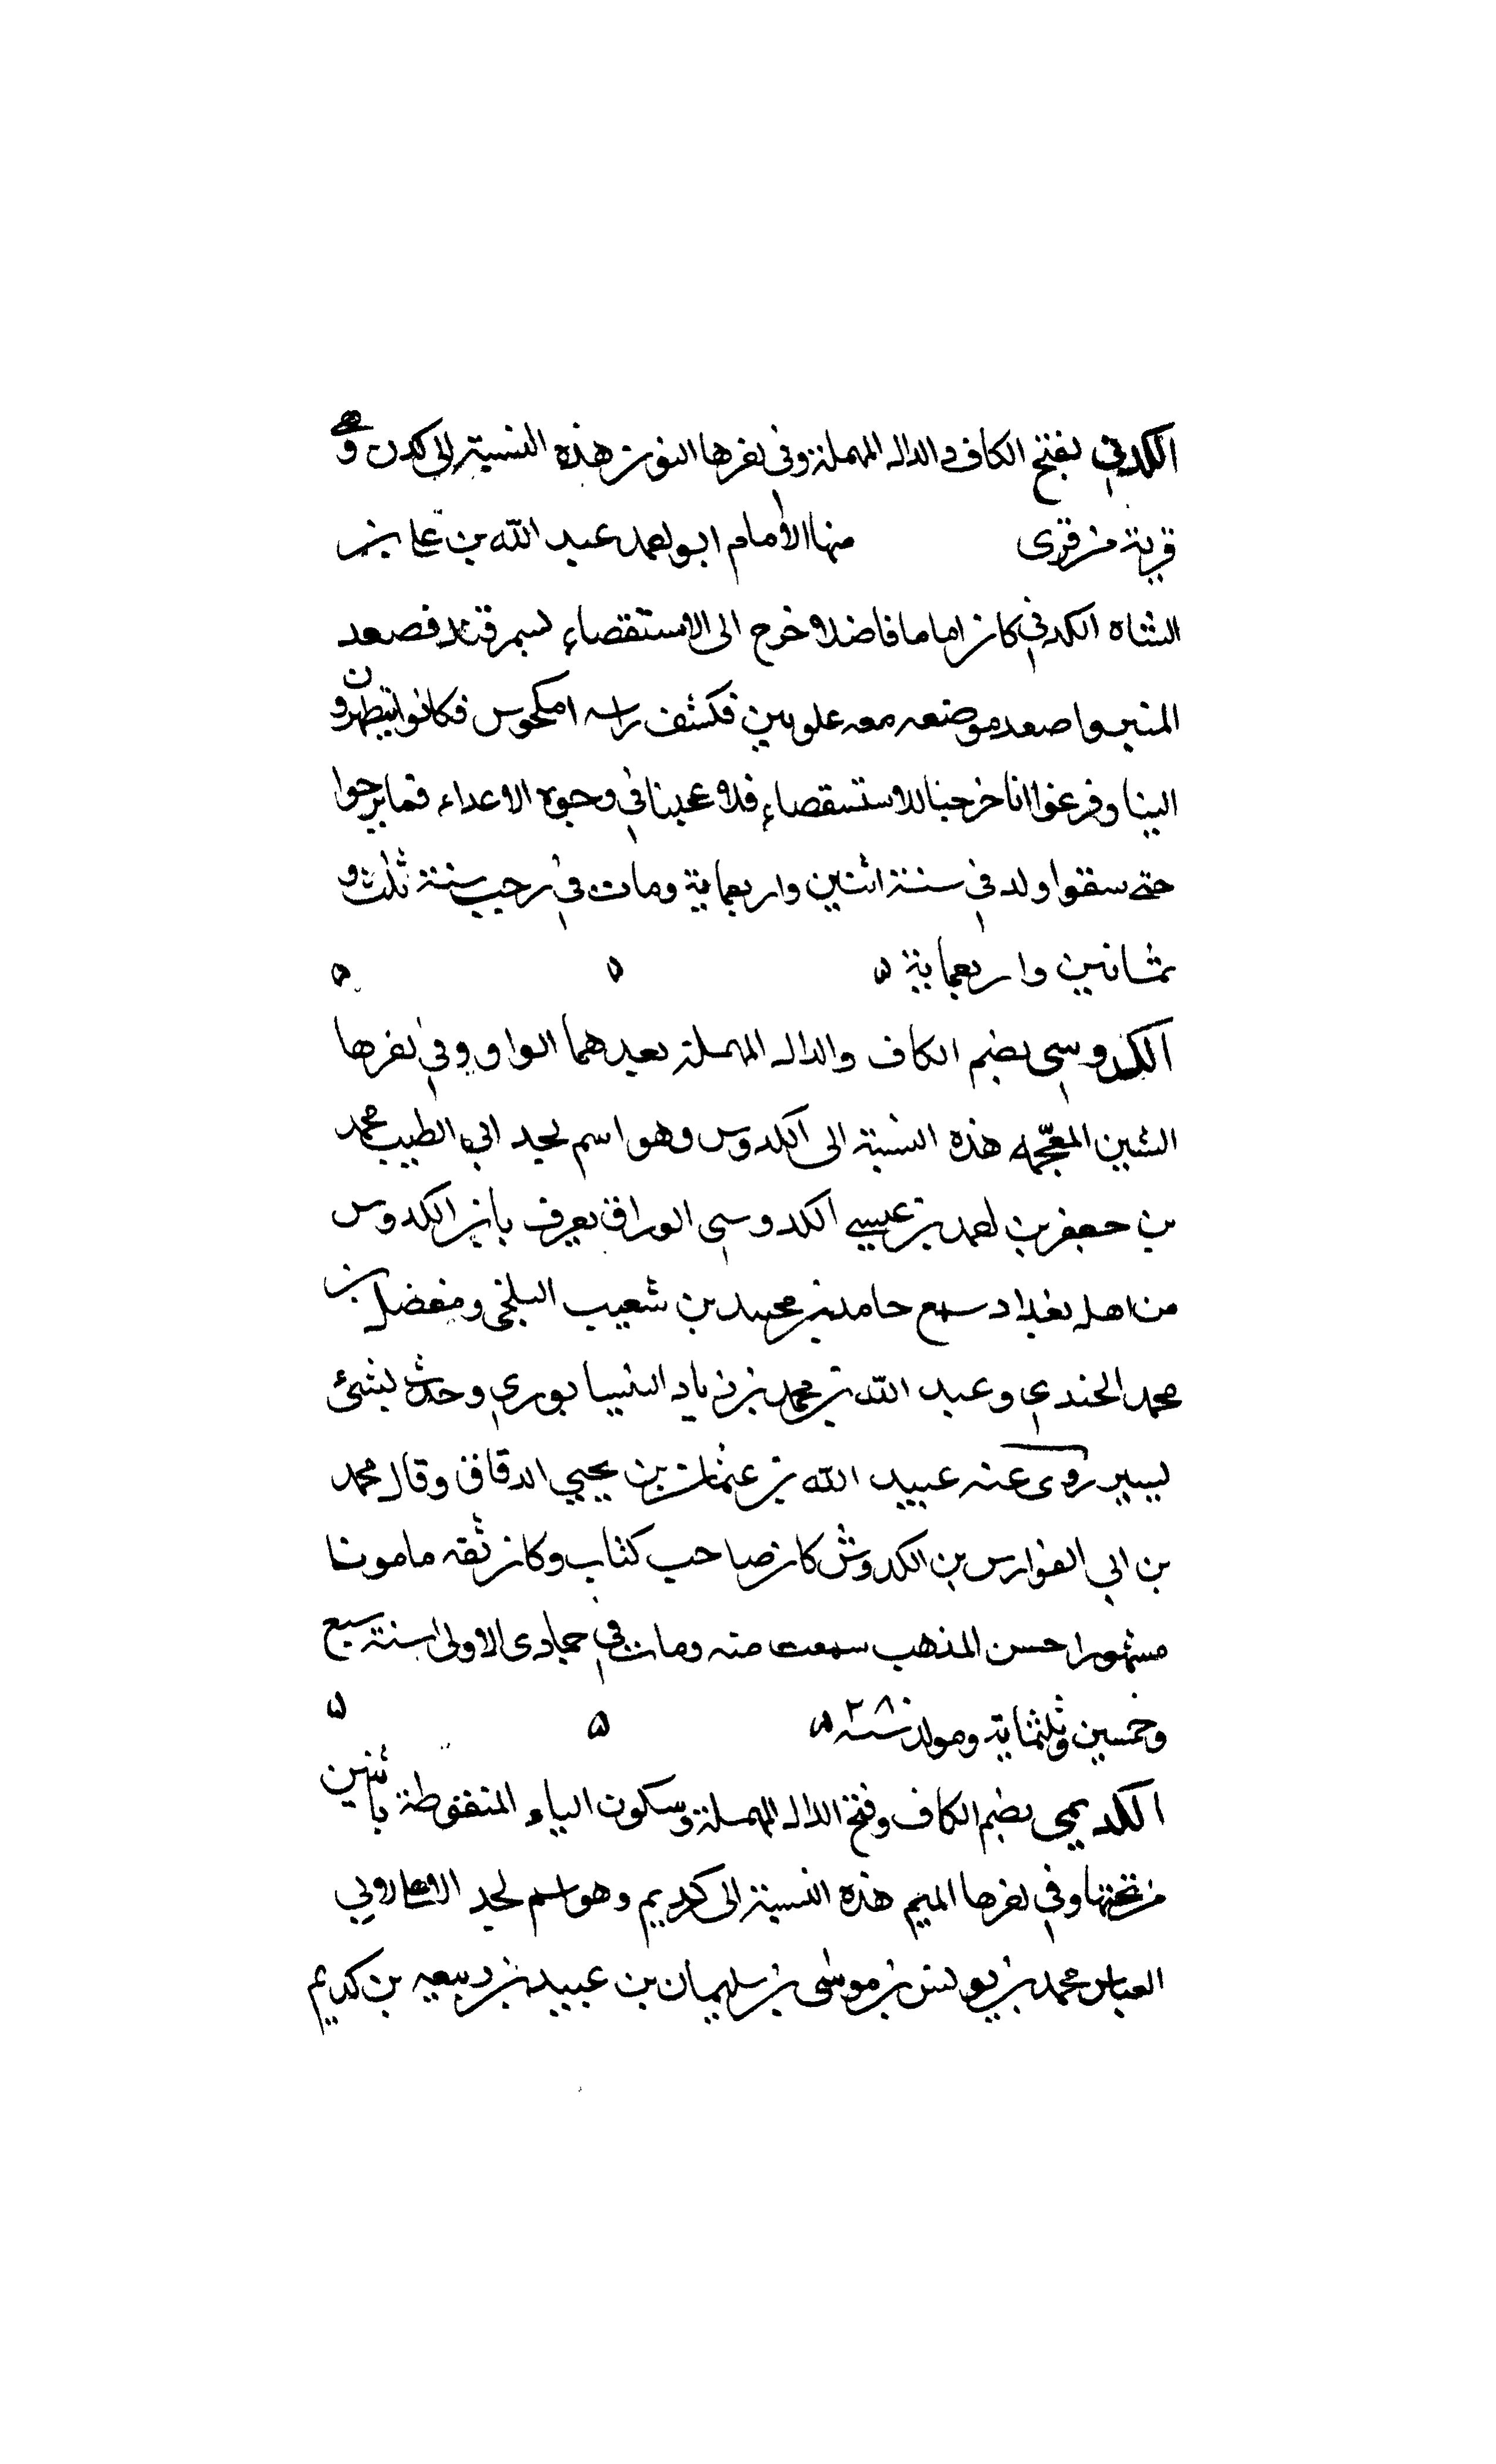 الكدني بفتح الكاف والدال المهملة وفي اخرها النون هذه النسبة الى كدن وهي
قرية من قرى منها الامام ابو احمد عبد الله بن علي بن
الشاه الكدني كان اماما فاضلا خرج الى الاستقصاء بسمرقند فصعد
المنبر واصعد موضعه معه علويين فكشف راسه فكانوا يتطهرون
الينا وفرغوا انا خرجنا للاستسقصاء فلا في وجوه الاعداء فما برحوا
حتى سقوا ولد في سنة اثنين واربعماية ومات في رجب سنة ثلث و
ثمانين واربعماية ٥ ٥ ٥
الكدوسي بضم الكاف والدال المهملة بعدهما الواو وفي اخرها
الشين المعجمه هذه النسبة الى الكدوس وهو اسم لجد ابي الطيب محمد
بن جعفر بن احمد بن عيسى الكدوسي الوراق يعرف بابن الكدوس
من اهل بغداد سمع حامد بن محمد بن شعيب البلخي ومفضل بن
محمد الجندي وعبد الله بن محمد بن زياد النيسابوري وحدث بشئ
يسير روى عنه عبيد الله بن عثمان بن يحيي الدقاق وقال محمد
بن ابي الفوارس بن الكدوش كان صاحب كتاب وكان ثقه مامونا
مشهورا حسن المذهب سمعت منه ومات في جمادى الاولى سنة سبع
وخمسين وثلثماية ومولده سنة ٢٨ ٥ ٥ ٥
الكديمي بضم الكاف وفتح الدال المهملة وسكون الياء المنقوطة باثنين
من تحتها وفي اخرها الميم هذه النسبة الى كديم وهو اسم لجد ابي
العباس محمد بن يونس بن موسى بن سليمان بن عبيد بن ربيعه بن كديم